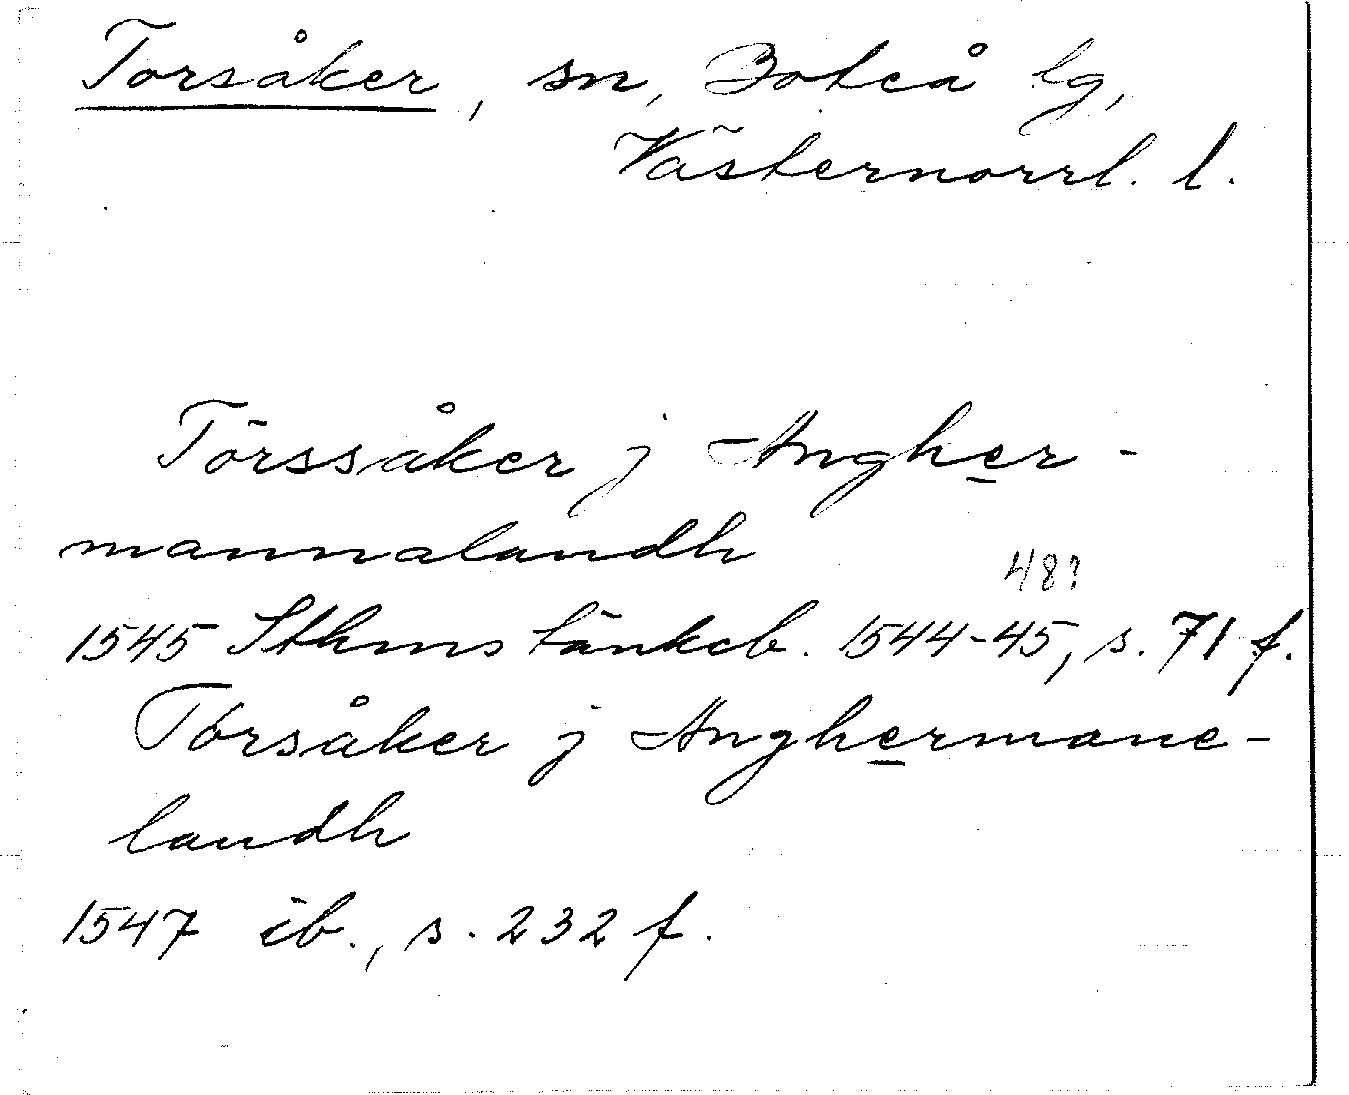 Torsåker, sn, Boteå lg,
Västernorrl. l.
Törssåker j Angher-
mannalandh
48?
1545 Sthms tänkeb. 1544-45, s. 71 f.
Törsåker j Anghermane-
landh
1547 ib., s. 232 f.